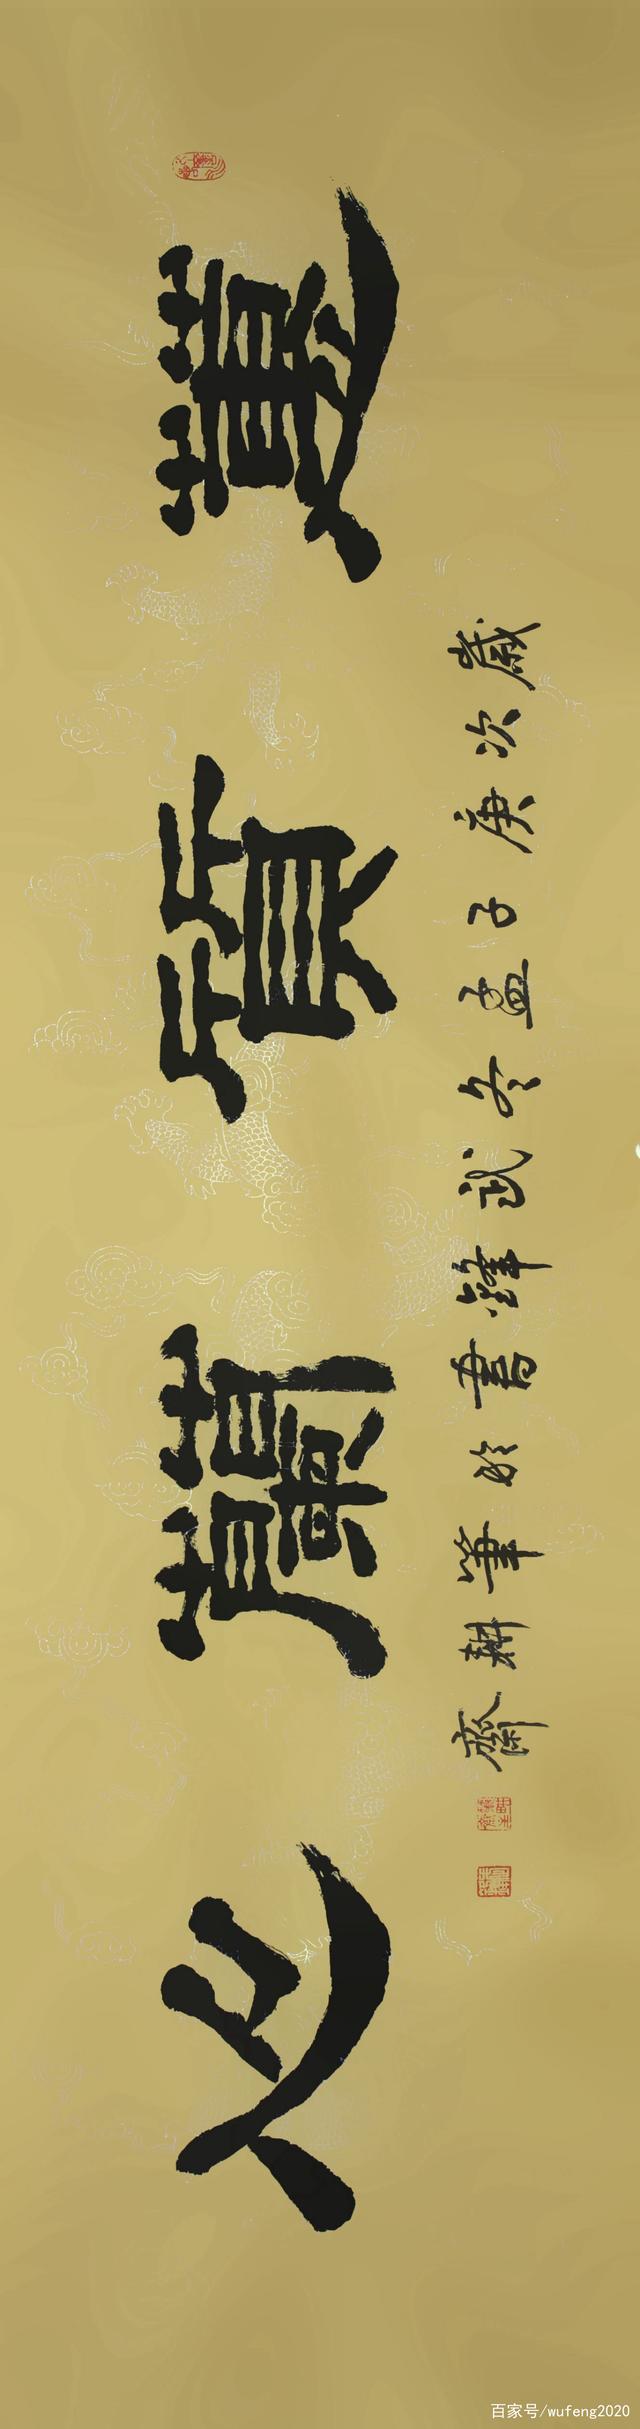 蕙質蘭心
歲次庚子孟冬武鋒書於筆耕齋
百家号/wufeng2020